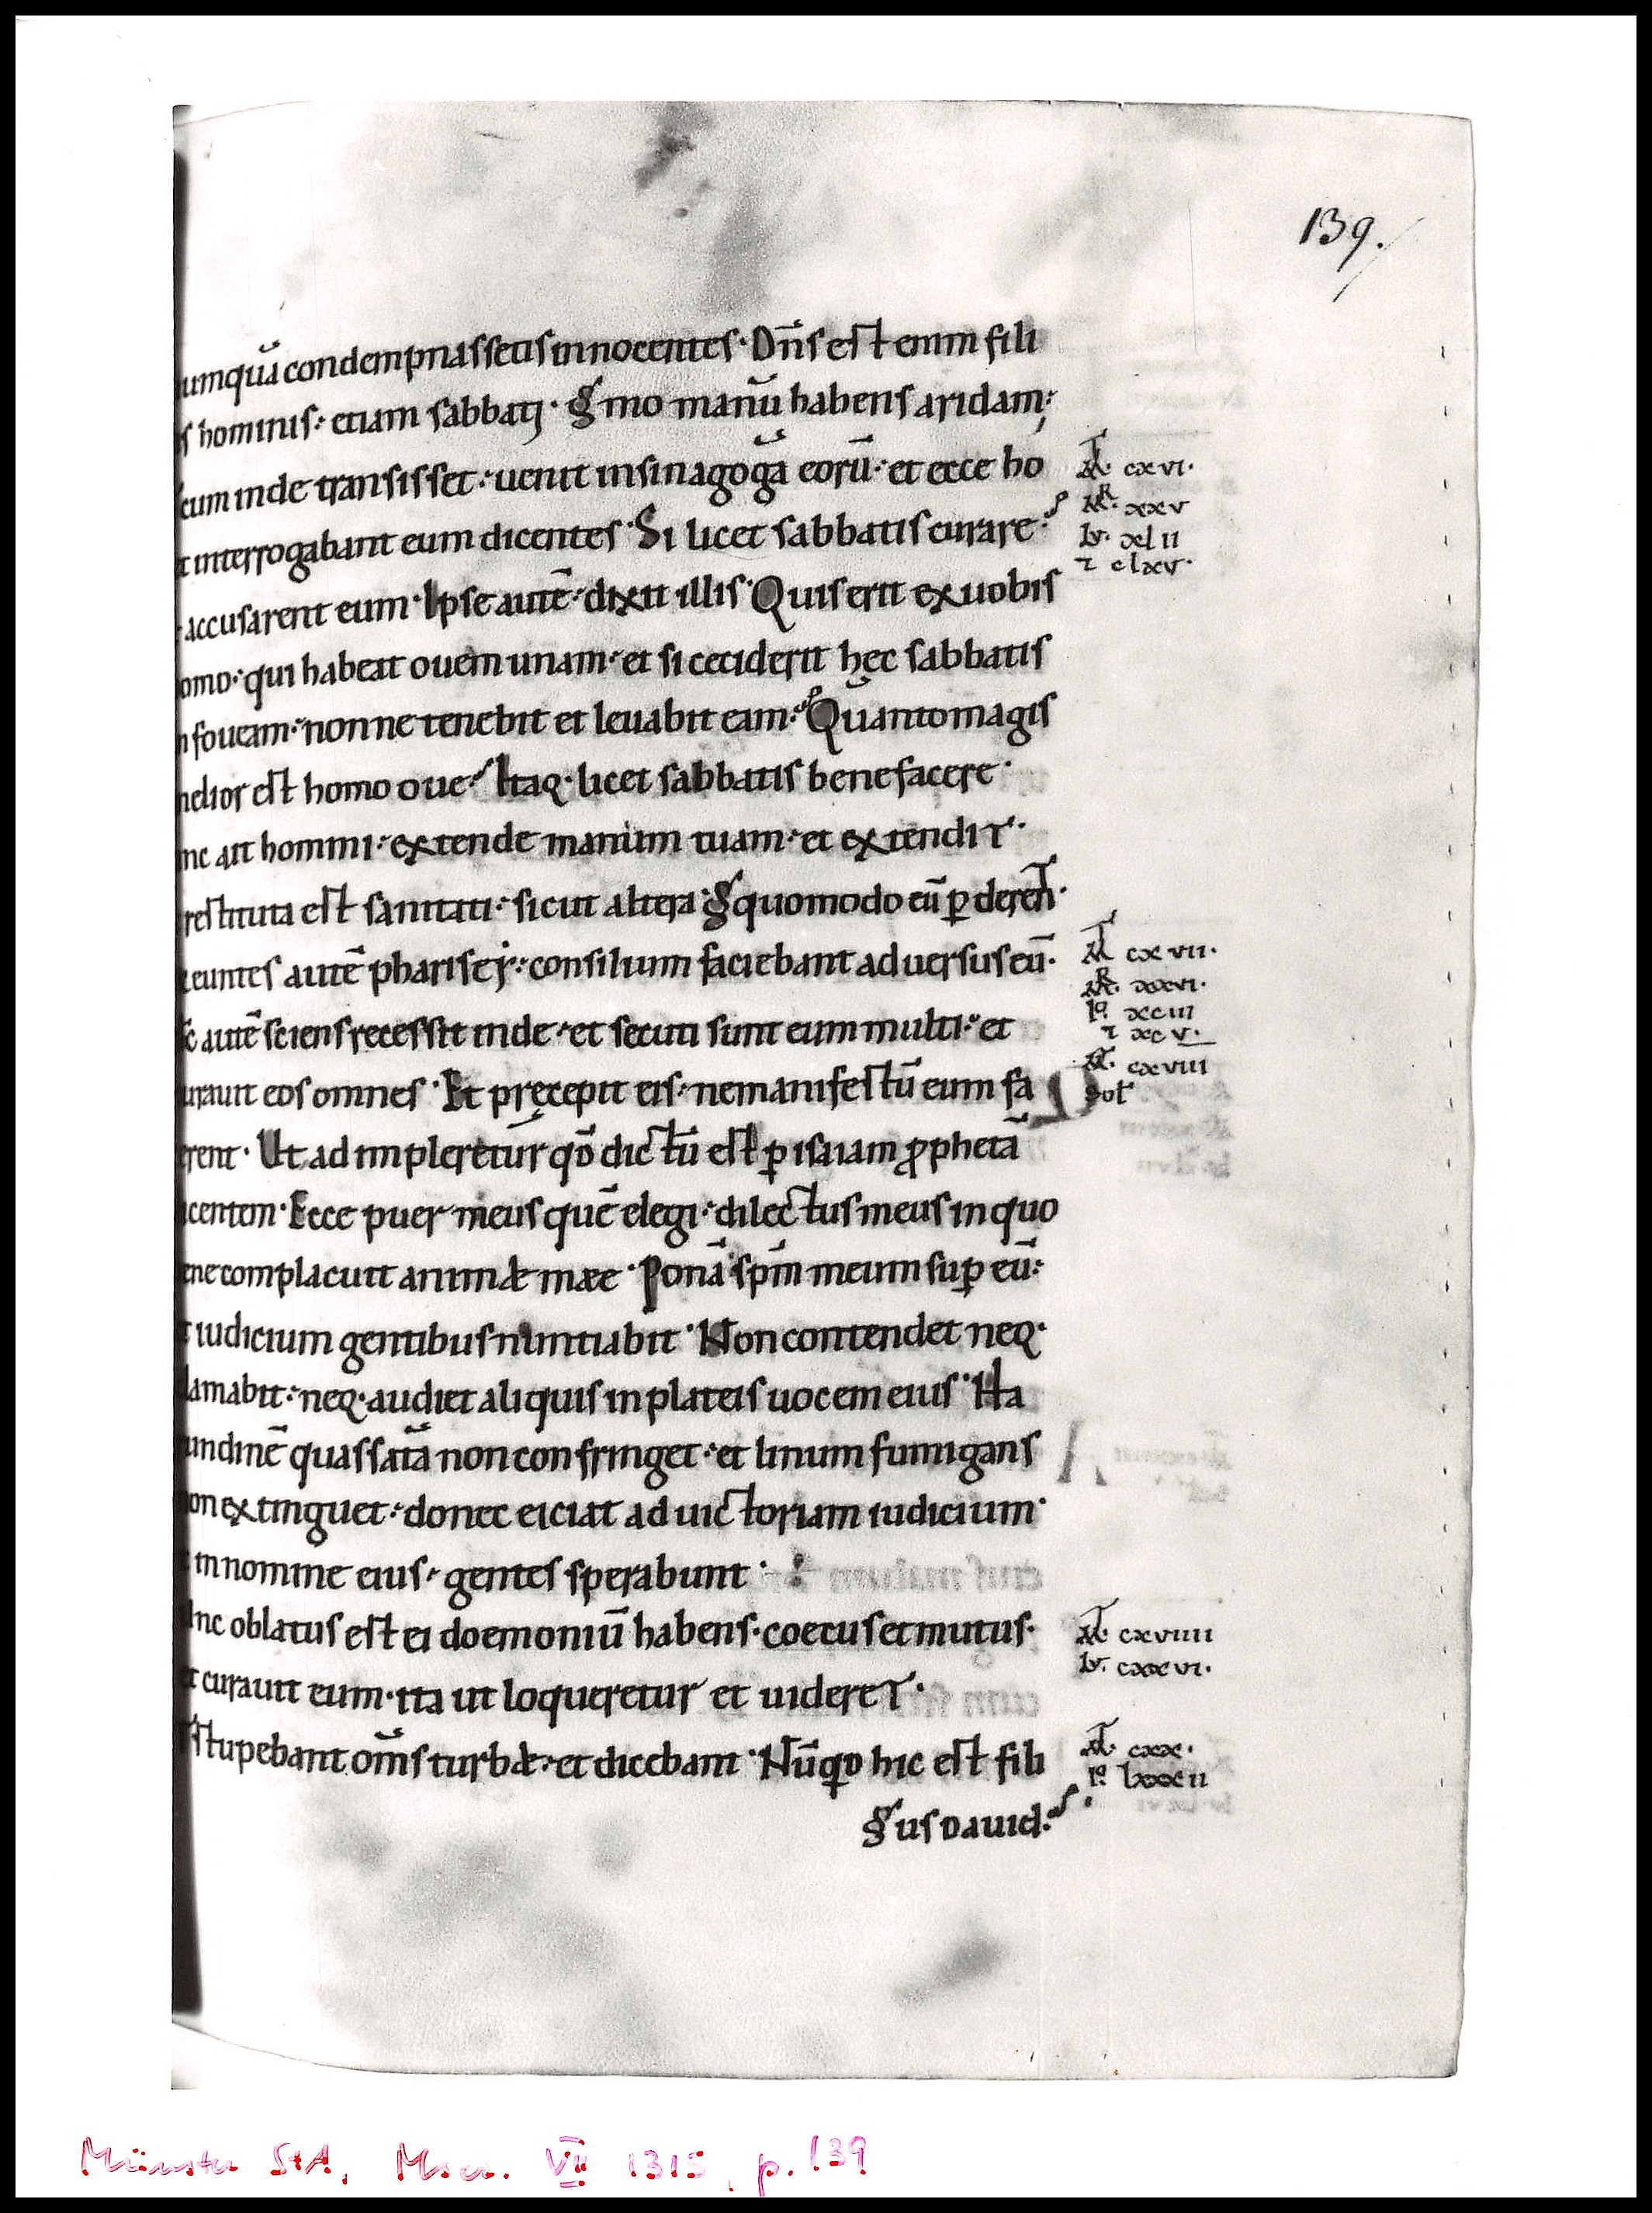 139.
umquā condempnassetis innocentes · Dn̄s est enim fili
s hominis : etiam sabbatj · § mo manū habens aridam ;
cum inde transisset : uenit in sinagogā eorū : et ecce ho
M̄T cxvi ·
MR xxv
t interrogabant eum dicentes · Si licet sabbatis curare ?
lv · xlii
⁊ clxv ·
accusarent eum · Ipse autē : dixit illis · Quis erit ex uobis
omo : qui habeat ouem unam : et si ceciderit hęc sabbatis
n foueam : nonne tenebit et leuabit eam ? Quanto magis
melior est homo oue ? Itaq · licet sabbatis benefacere ·
nc ait homini : extende manum tuam : et extendit ·
restituta est sanitati : sicut altera · § quomodo eū ꝑderent ·
euntes autē pharisej : consilium faciebant aduersus eū ·
MT cxvii ·
MR · xxvi ·
Io xciii
⁊ xcv ·
c autē sciens recessit inde : et secuti sunt eum multi : et
MT · cxviii
sol
urauit eos omnes · Et pręcepit eis : ne manifestū eum fa
erent · Ut adimpleretur qđ dictū est ꝑ isaiam ꝓphetā
icentem · Ecce puer meus quē elegi : dilectus meus in quo
ene complacuit animæ mææ · Ponā sp̄m meum suꝑ eū :
t iudicium gentibus nuntiabit · Non contendet neq ·
lamabit : neq · audiet aliquis in plateis uocem eius · Ha
undinē quassatā non confringet : et linum fumigans
on extinguet : donec eiciat ad uictoriam iudicium ·
in nomine eius : gentes sperabunt ·
unc oblatus est ei doemoniū habens · coecus et mutus ·
MT cxviiii
lv · cxxvi ·
t curauit eum · ita ut loqueretur et uideret ·
stupebant om̄s turbæ : et dicebant · Nūqđ hic est fili
MT cxx ·
Io lxxxii
§ us Dauid ?
Münster StA, Mscr. VII 1315, p. 139